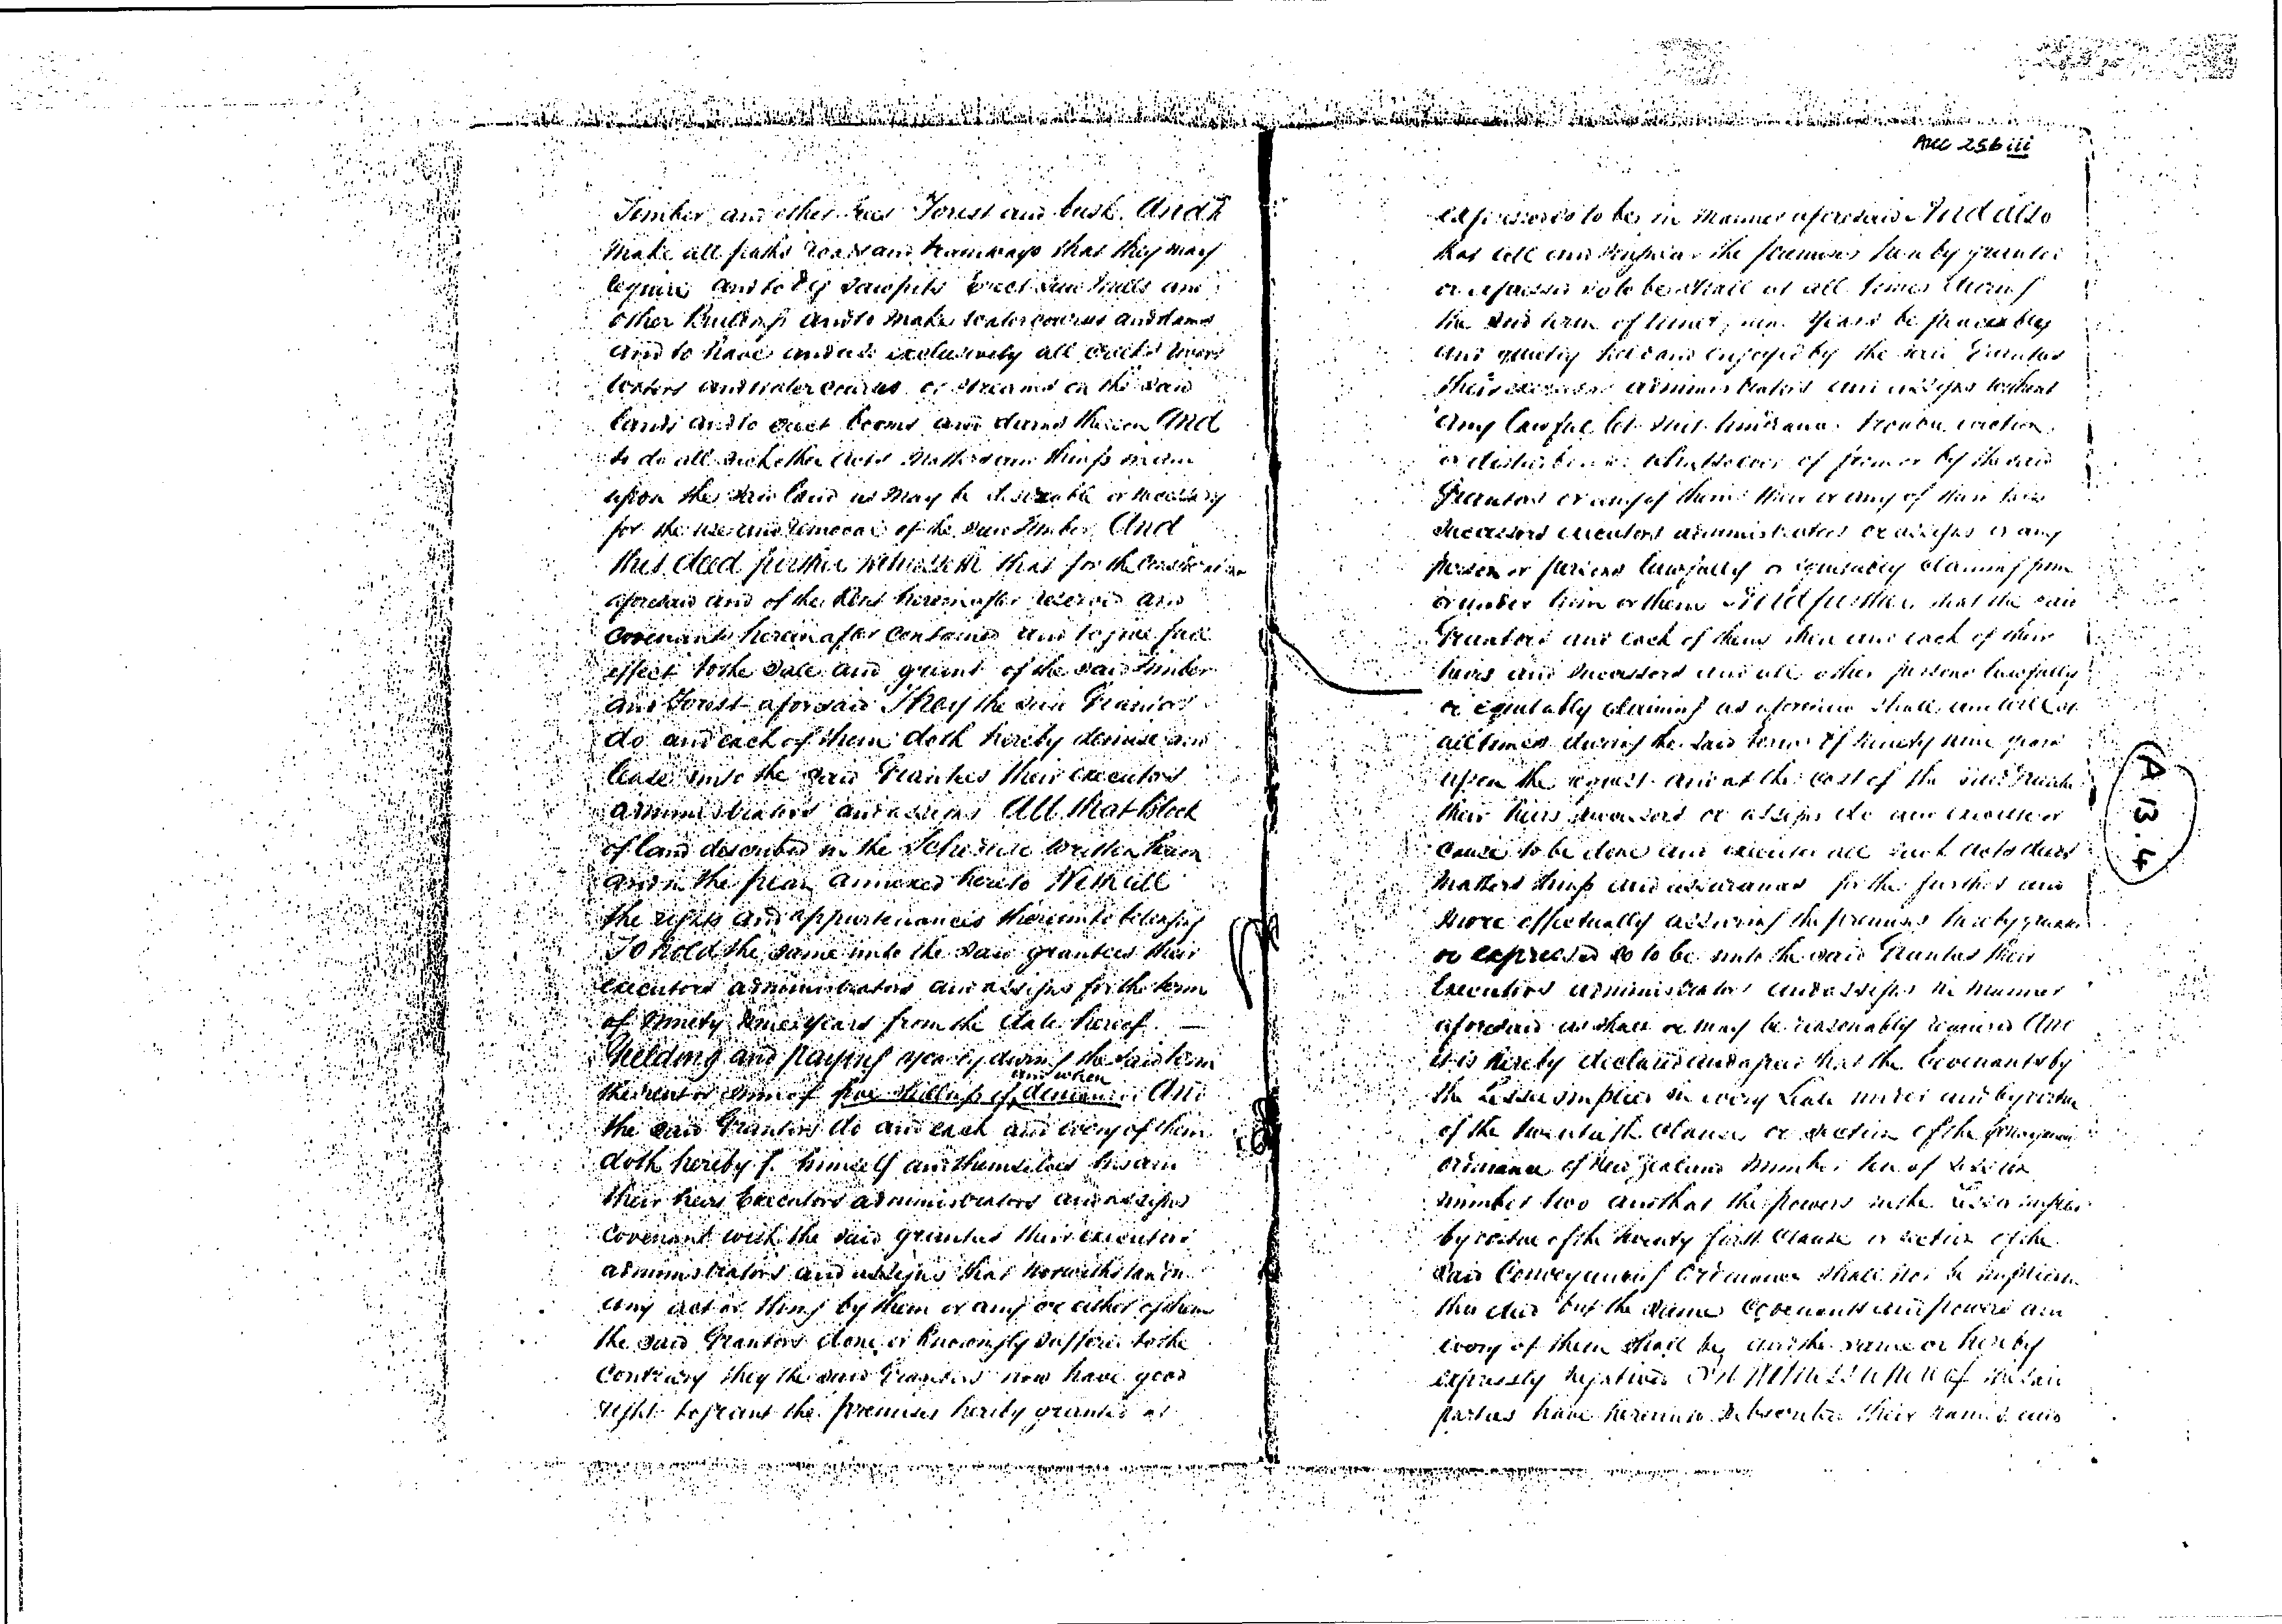 Timber and other trees Forest and bush. And to
make all paths roads and tramways that they may
require and to dig sawpits Erect Saw Mills and
other Buildings and to make watercourses and dams
and to have and use exclusively all creeks rivers
waters and watercourses or streams on the said
lands and to erect booms and dams thereon And
to do all such other acts matters and things in and
upon the said land as may be desirable or necessary
for the use and removal of the said timber. And
this deed further witnesseth that for the consideration
aforesaid and of the Rent hereinafter reserved and
covenants hereinafter contained and to give full
effect to the sale and grant of the said timber
and Forest aforesaid They the said Grantors
do and each of them doth hereby demise and
lease unto the said Grantees their executors
administrators and assigns All that Block
of land described in the Schedule written herein
and in the plan annexed hereto With all
the rights and appurtenances thereunto belonging
To hold the same unto the said grantees their
executors administrators and assigns for the term
of Ninety nine years from the date hereof —
Yielding and paying yearly during the said term
and when
the rent or sum of five shillings if demanded And
the said Grantors do and each and every of them
doth hereby for himself and themselves his and
their heirs Executors administrators and assigns
Covenant with the said grantees their executors
administrators and assigns that notwithstanding
any act or thing by them or any or either of them
the said Grantors done or knowingly suffered to the
contrary they the said Grantors now have good
right to grant the premises hereby granted or
ACC 256 iii
expressed so to be in manner aforesaid And also
that all and singular the premises hereby granted
or expressed so to be shall at all times during
the said term of ninety nine years be peaceably
and quietly held and enjoyed by the said Grantees
their executors administrators and assigns without
any lawful let suit hindrance trouble eviction
or disturbance whatsoever of from or by the said
Grantors or any of them their or any of their heirs
successors executors administrators or assigns or any
person or persons lawfully or equitably claiming from
or under him or them And further that the said
Grantors and each of them their and each of their
heirs and successors and all other persons lawfully
or equitably claiming as aforesaid shall and will at
all times during the said term of ninety nine years
upon the request and at the cost of the said Grantees
their heirs successors or assigns do and execute or
cause to be done and executed all such acts deeds
matters things and assurances for the further and
more effectually assuring the premises hereby granted
or expressed so to be unto the said Grantees their
Executors administrators and assigns in manner
aforesaid as shall or may be reasonably required And
it is hereby declared and agreed that the Covenants by
the Lessee implied in every Lease under and by virtue
of the twentieth clause or section of the Conveyancing
ordinance of New Zealand number ten of Session
number two and that the powers in the Lessor implied
by virtue of the twenty first clause or section of the
said Conveyancing Ordinance shall not be implied in
this deed but the same Covenants and powers and
every of them shall be and the same are hereby
expressly negatived In witness whereof the said
parties have hereunto subscribed their names and
A B. F